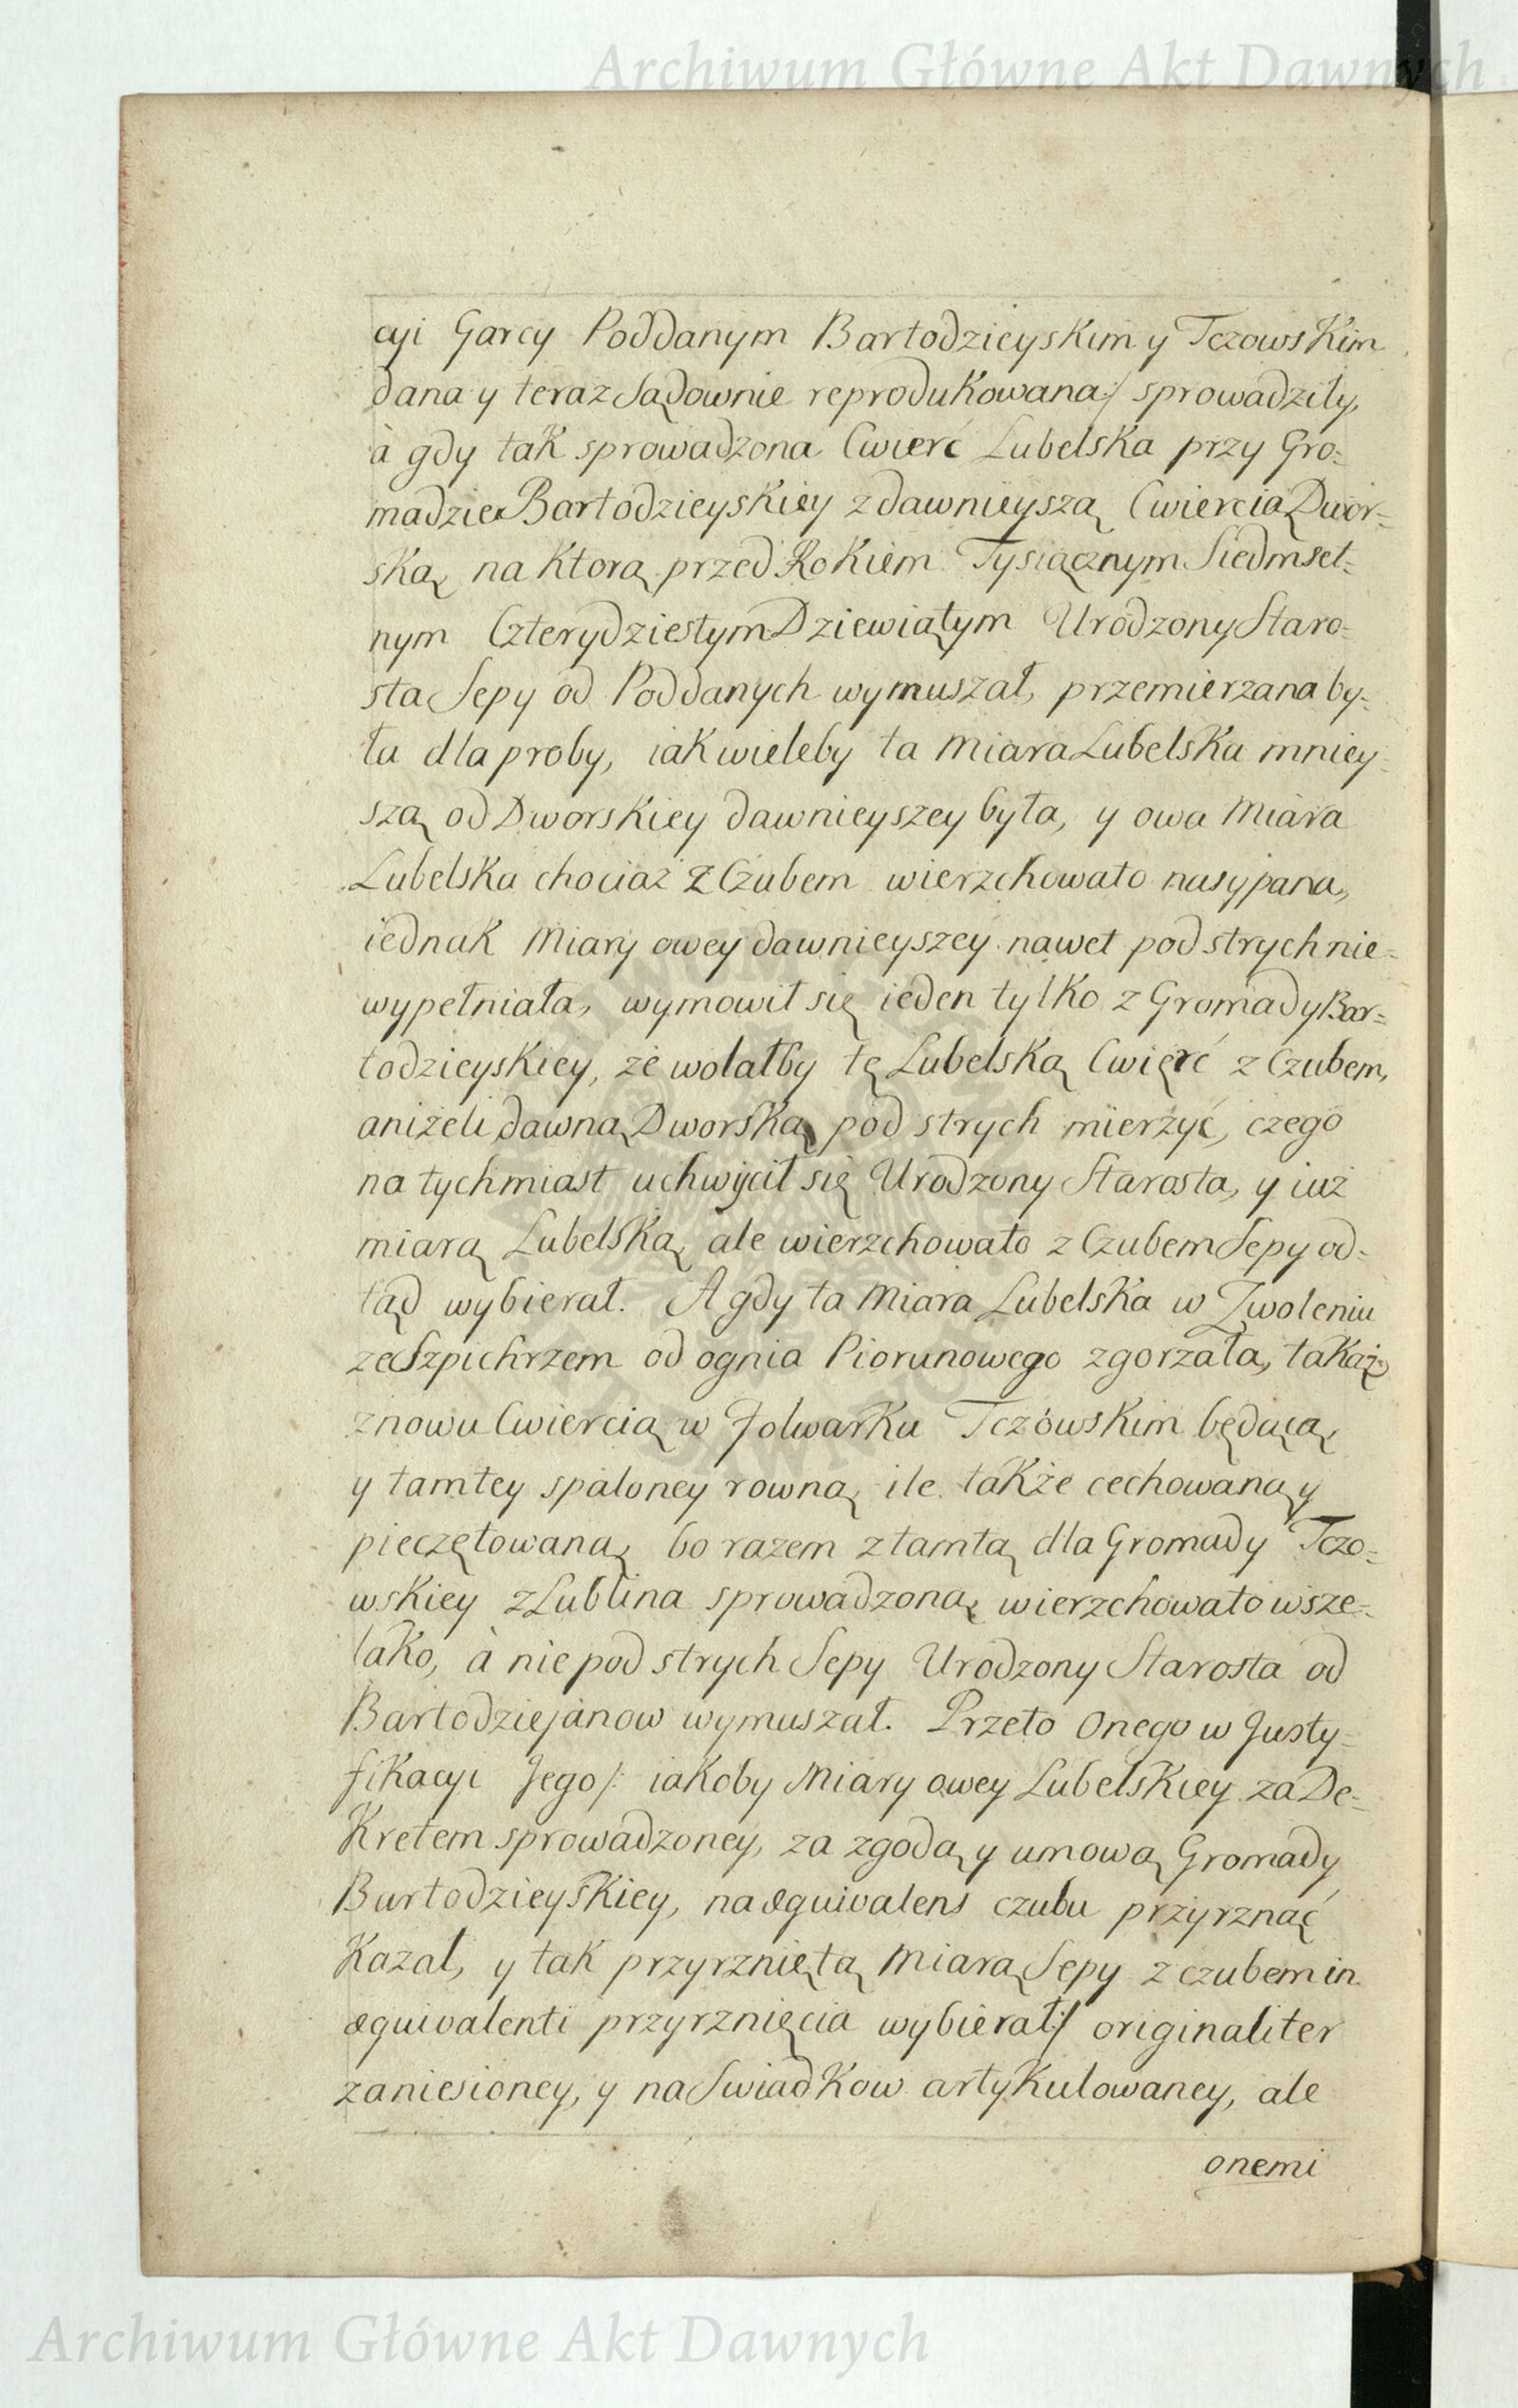 Archiwum Główne Akt Dawnych
cyi Garcy Poddanym Bartodzieyskim y Tczowskim
dana y teraz Sądownie reprodukowana:/ sprowadziły,
à gdy tak sprowadzona Cwierć Lubelska przy Gro=
madzie Bartodzieyskiey z dawnieyszą Cwiercią Dwor=
ską, na ktorą przed Rokiem Tysiącznym Siedmset=
nym Czterydziestym Dziewiątym Urodzony Staro=
sta Sepy od Poddanych wymuszał, przemierzana by=
ła dla proby, iak wieleby ta Miara Lubelska mniey=
szą od Dworskiey dawnieyszey była, y owa Miara
Lubelska chociaż z Czubem wierzchowato nasypana,
iednak Miary owey dawnieyszey nawet pod strych nie=
wypełniała, wymowił się ieden tylko z Gromady Bar=
todzieyskiey, że wolałby tę Lubelską Cwięrć z Czubem,
aniżeli dawną Dworską pod strych mierzyć, czego
natychmiast uchwycił się Urodzony Starosta, y iuż
miarą Lubelską, ale wierzchowato z Czubem Sepy od=
tąd wybierał. A gdy ta Miara Lubelska w Zwoleniu
ze Szpichrzem od ognia Piorunowego zgorzała, takąż
znowu Cwiercią w Folwarku Tczowskim będącą,
y tamtey spaloney rowną, ile także cechowaną y
pieczętowaną, bo razem z tamtą dla Gromady Tczo=
wskiey z Lublina sprowadzoną, wierzchowato wsze=
lako, à nie pod strych Sepy Urodzony Starosta od
Bartodziejanow wymuszał. Przeto Onego w Justy=
fikacyi Jego /: iakoby Miary owey Lubelskiey za De=
kretem sprowadzoney, za zgodą y umową Gromady
Bartodzieyskiey, na æquivalens czubu przyrznąć
Kazał, y tak przyrzniętą Miarą Sepy z czubem in
æquivalenti przyrznięcia wybierał:/ originaliter
zaniesioney, y na Swiadkow artykulowaney, ale
onemi
Archiwum Główne Akt Dawnych